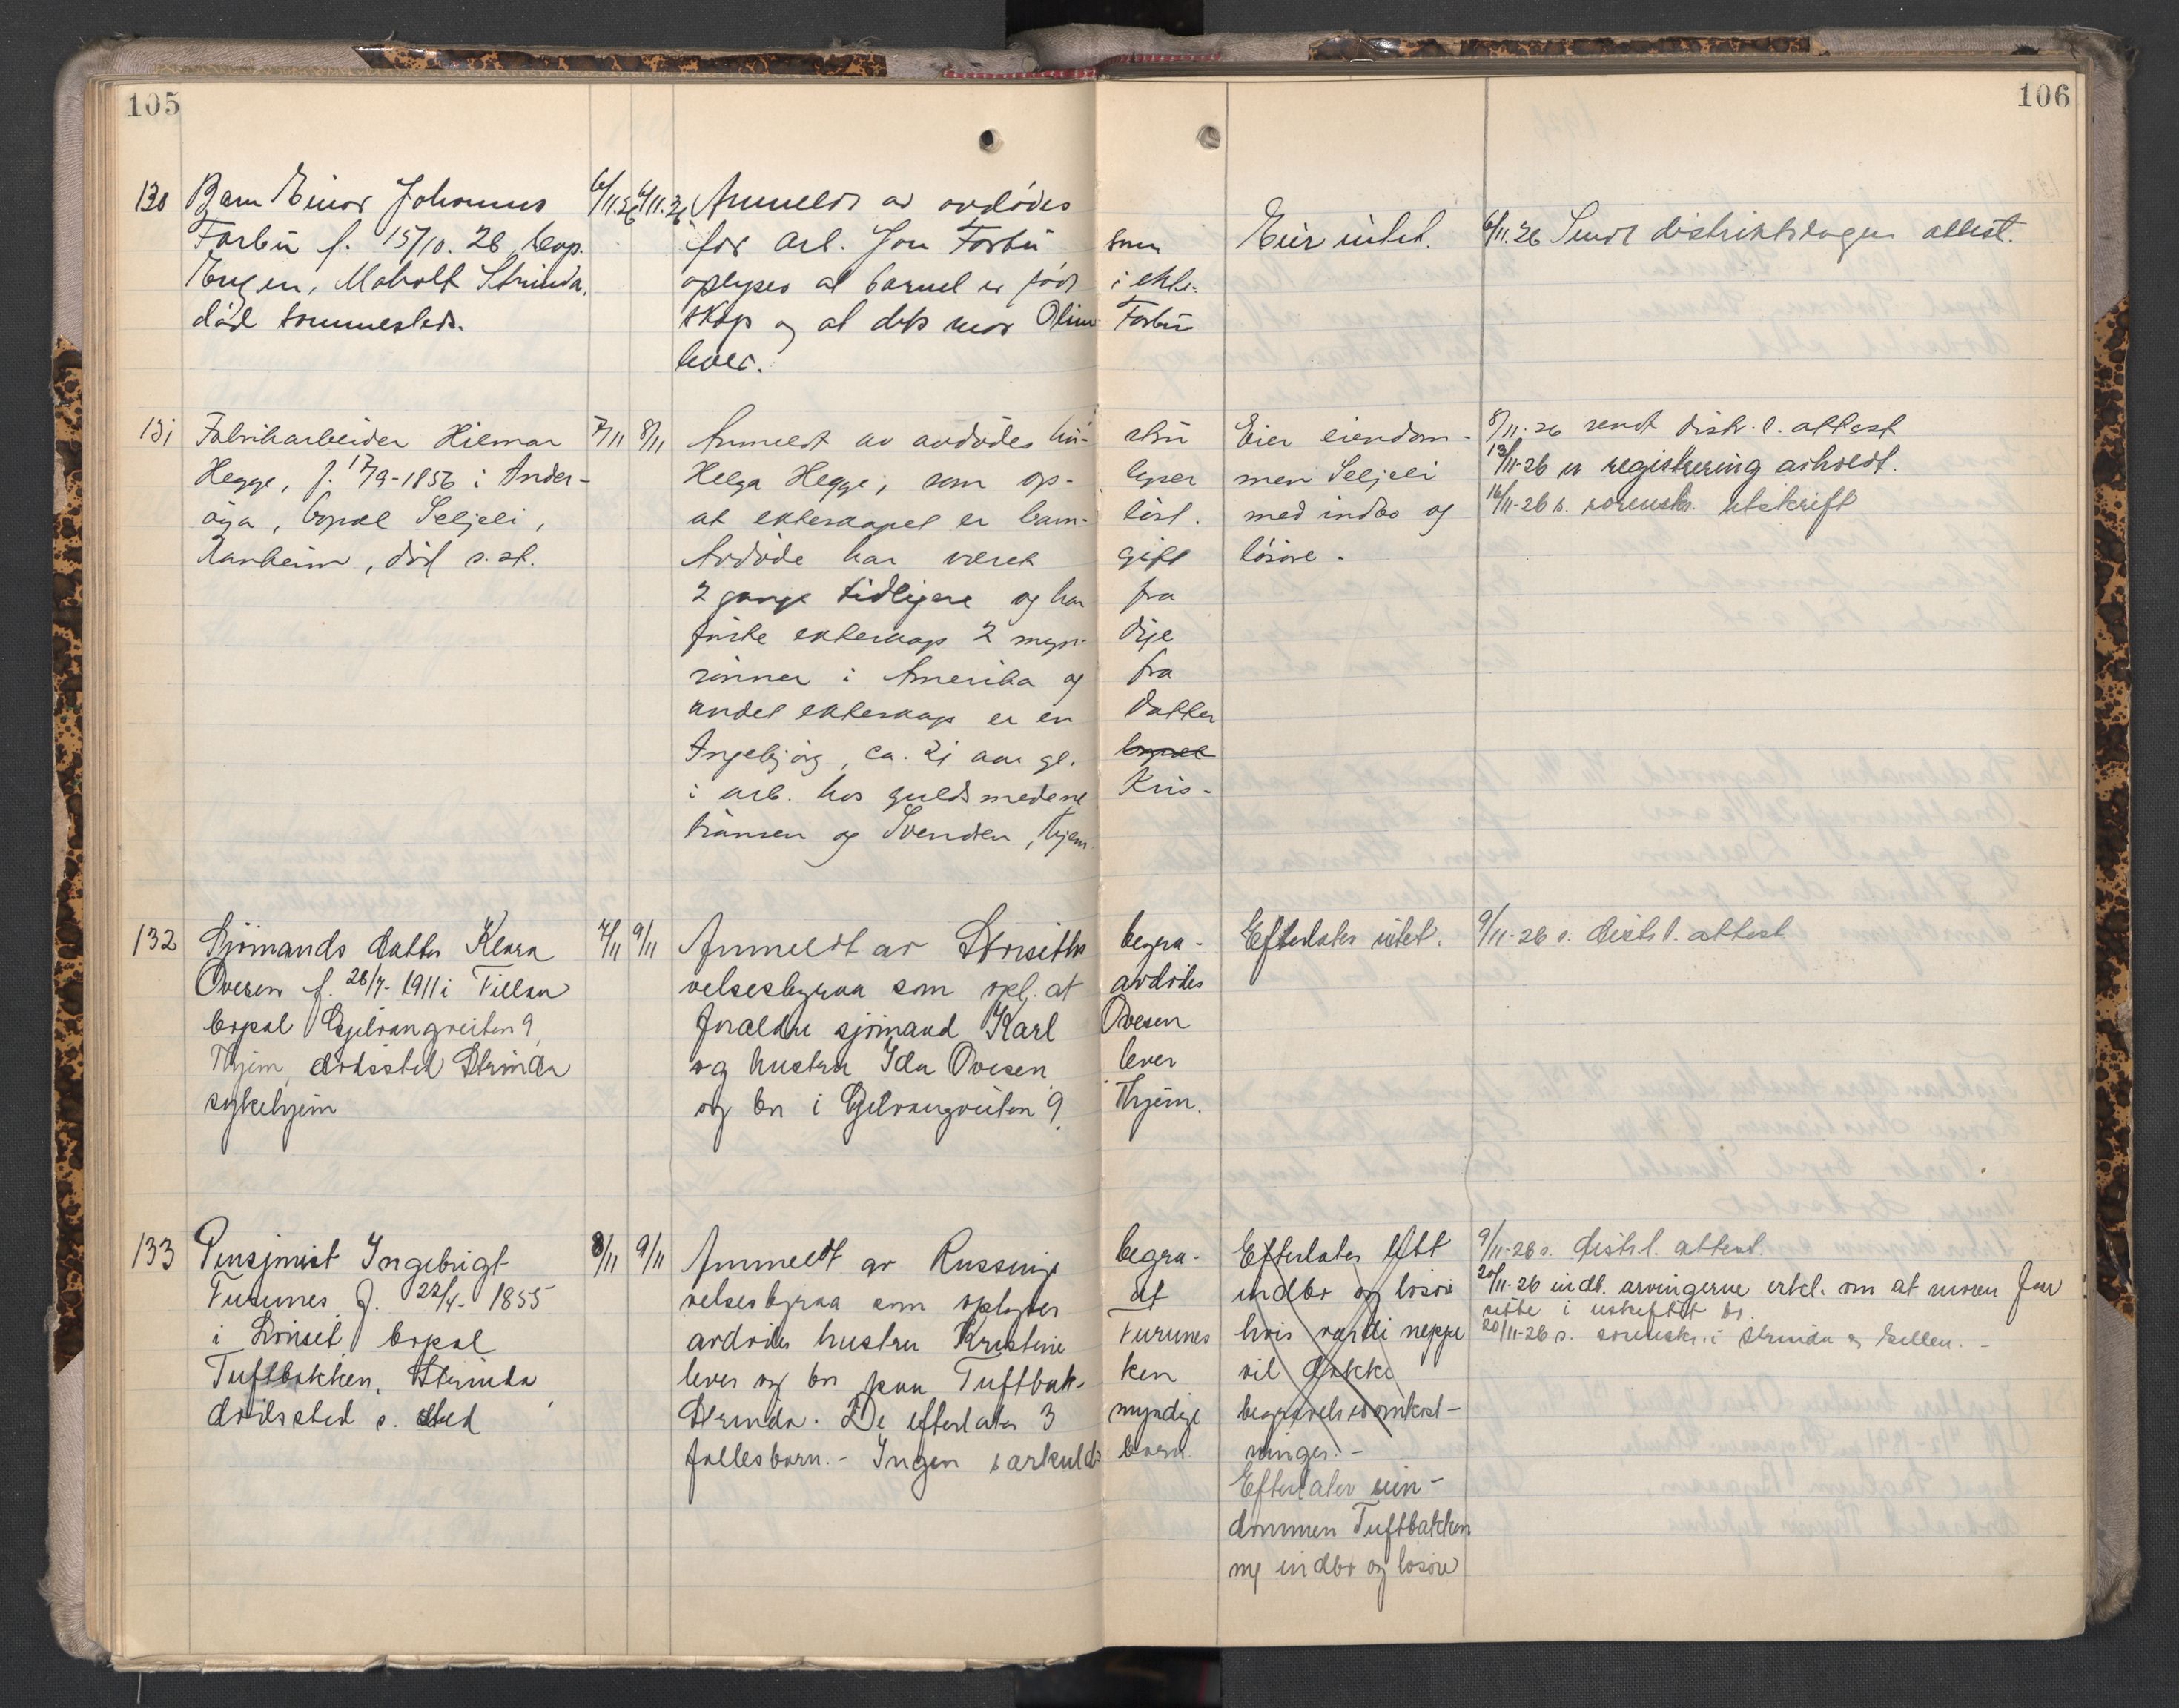 105
106
130 Barn Einar Johannes 6/11.26 6/11.26 Anmeldt av avdødes
Forbu f. 15/10. 26, bop. far arb. Jon Forbu som Eier intet. 6/11.26 Sendt distriktslægen attest.
Engen, Moholt Strinda, oplyses at barnet er født i ekte-
død sammesteds. skap og at dets mor Oline Forbu
lever.
131 Fabrikarbeider Hilmar 7/11 8/11 Anmeldt av avdødes hu- stru Eier eiendom- 8/11.26 sendt distr. l. attest
Hegge, f. 17/9-1856 i Inder- Helga Hegge, som op- lyser men Seljeli 13/11-26 er registrering avholdt.
øya, bopæl Seljeli, at ekteskapet er barn- løst. med indbo og 16/11-26 s. sorenskr. utskrift
Ranheim, død s.st. Avdøde har været gift løsøre.
2 gange tidligere og har fra
første ekteskap 2 myn- dige
sønner i Amerika og fra
andet ekteskap er en datter
Ingebjørg, ca. 21 aar gl. bopæl
i arb. hos guldsmedene Kris-
tiansen og Svendsen, Thjem.
132 Sjømands datter Klara 7/11 9/11 Anmeldt av Storseths begra- Efterlater intet. 9/11-26 s. distr. l. attest
Ovesen f. 26/7-1911 i Fillan velsesbyraa som opl. at avdødes
bopæl Gjelvangveiten 9, forældre sjømand Karl Ovesen
Thjem, dødssted Strinda og hustru Ida Ovesen lever
sykehjem og bor i Gjelvangveiten 9, Thjem.
133 Pensjonist Ingebrigt 8/11 9/11 Anmeldt av Russings begra- Efterlater litt 9/11-26 s. distr.l. attest.
Furunes f. 22/4-1855 velsesbyraa som oplyser at indbo og løsøre 20/11-26 indb. arvingerne erkl. om at moren faar
sitte i uskiftet bo.
i Lønset, bopæl avdødes hustru Kristine Furunes hvis værdi neppe 20/11-26 s. sorenskr. i Strinda
Tuftbakken, Strinda, lever og bor paa Tuftbak- ken vil dække
dødssted s. sted Strinda. De efterlater 3 myndige begravelsesomkost-
fællesbarn.- Ingen særkuld- barn. ninger.-
Efterlater eien-
dommen Tuftbakken
m/ indbo og løsøre